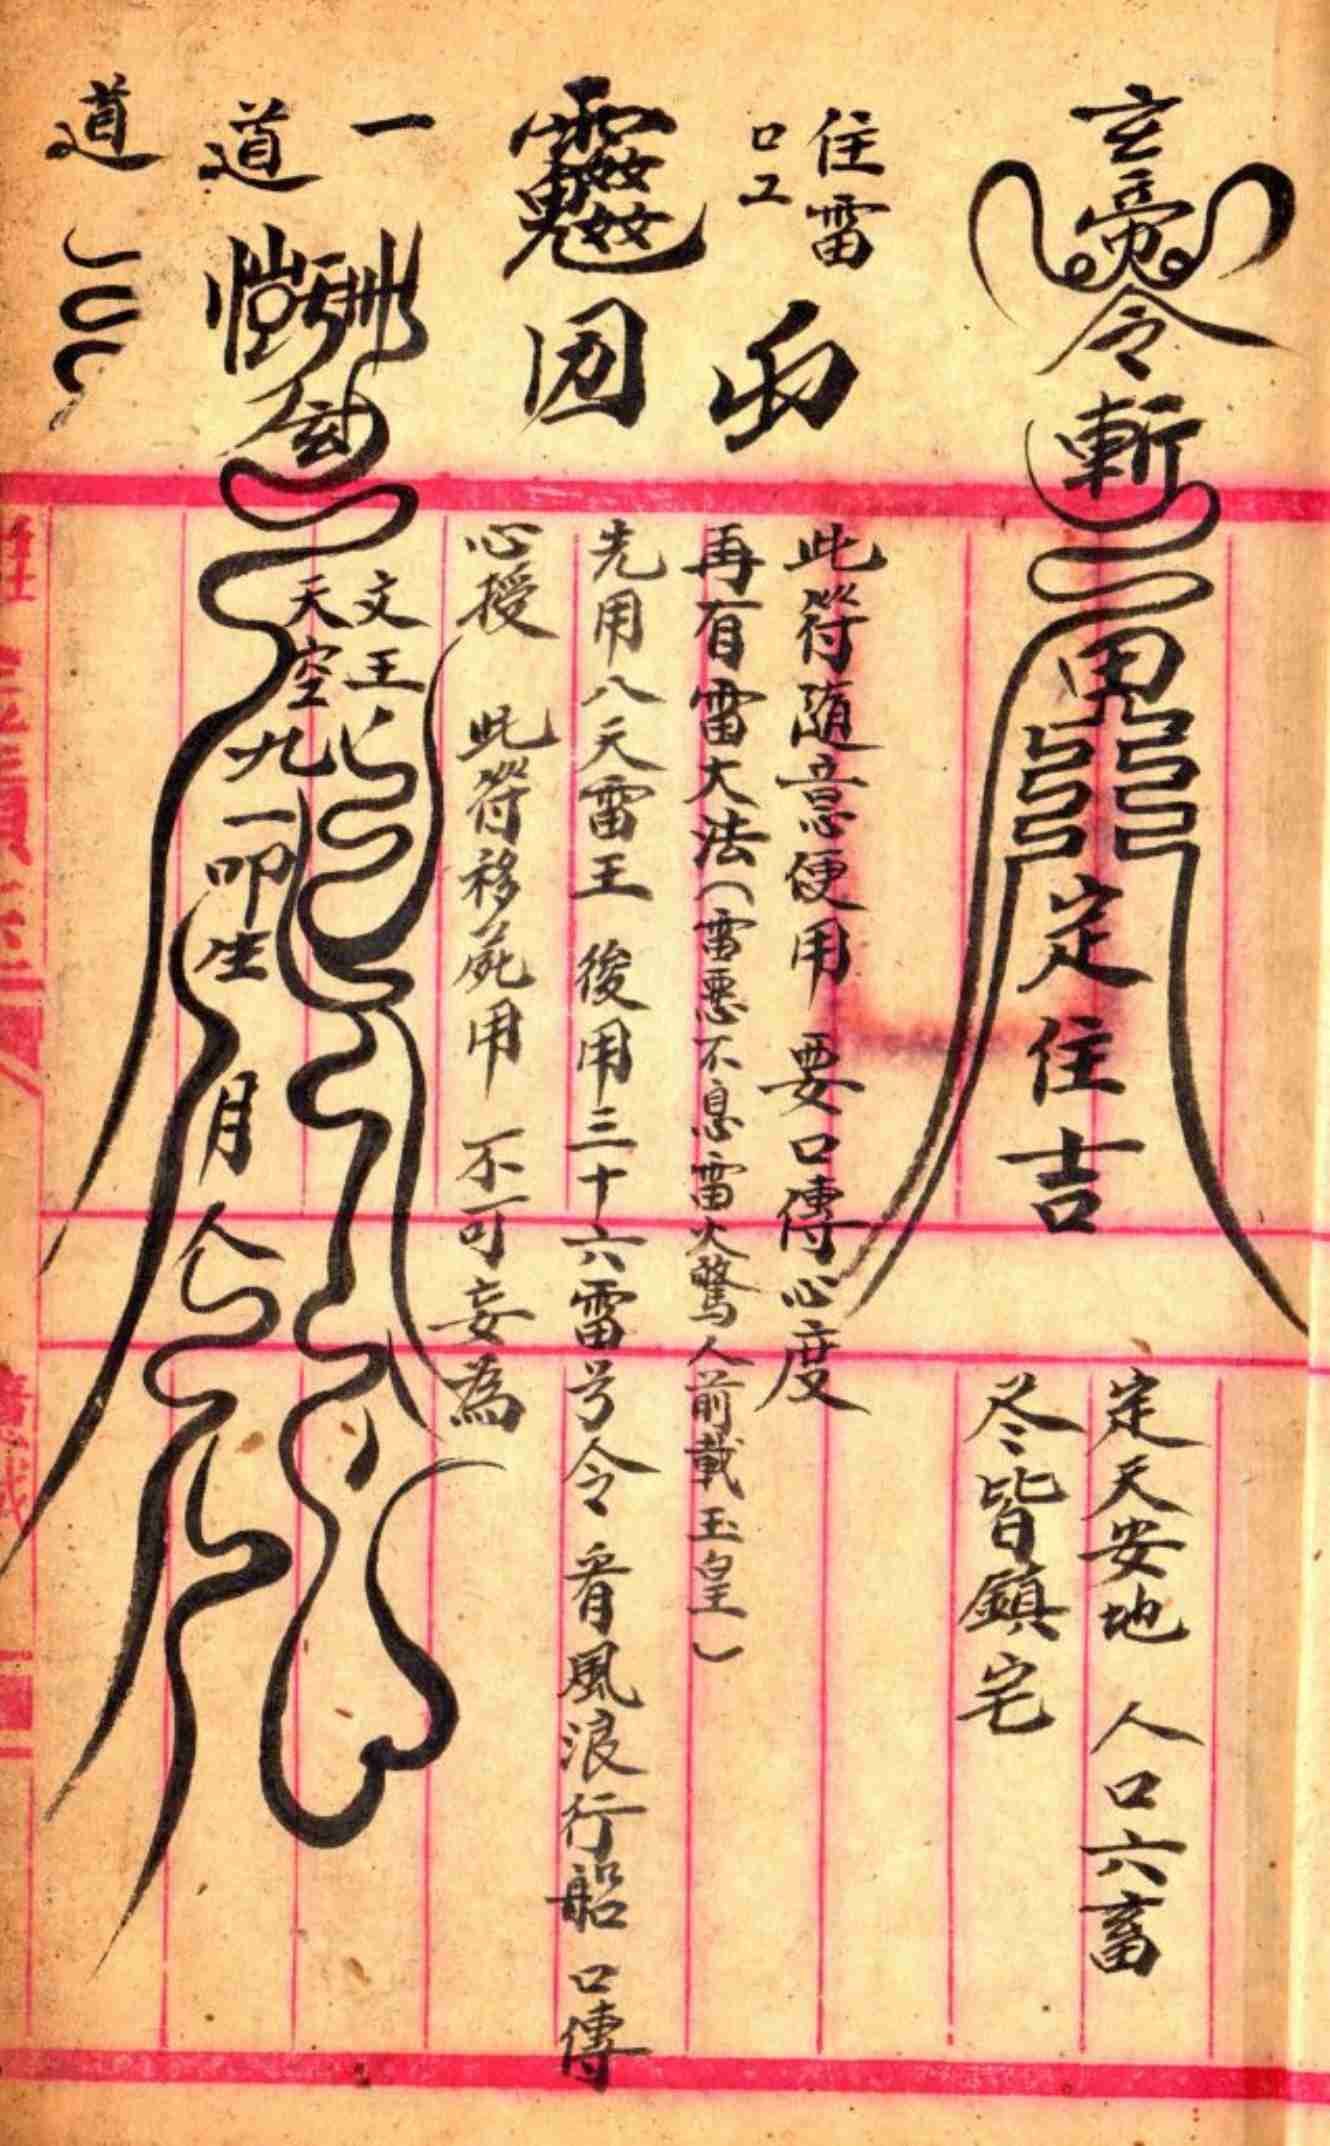 玄
令
斬
定住吉
定天安地 人口六畜
冬皆鎮宅
住雷
口工
此符隨意便用 要口傳心度
再有雷大法（雷惡不息雷火驚人前載玉皇）
先用八天雷王 後用三十六雷号令 看風浪行船 口傳
心授 此符移苑用 不可妄為
一
道
文王
天空
九
一叩生
月
道